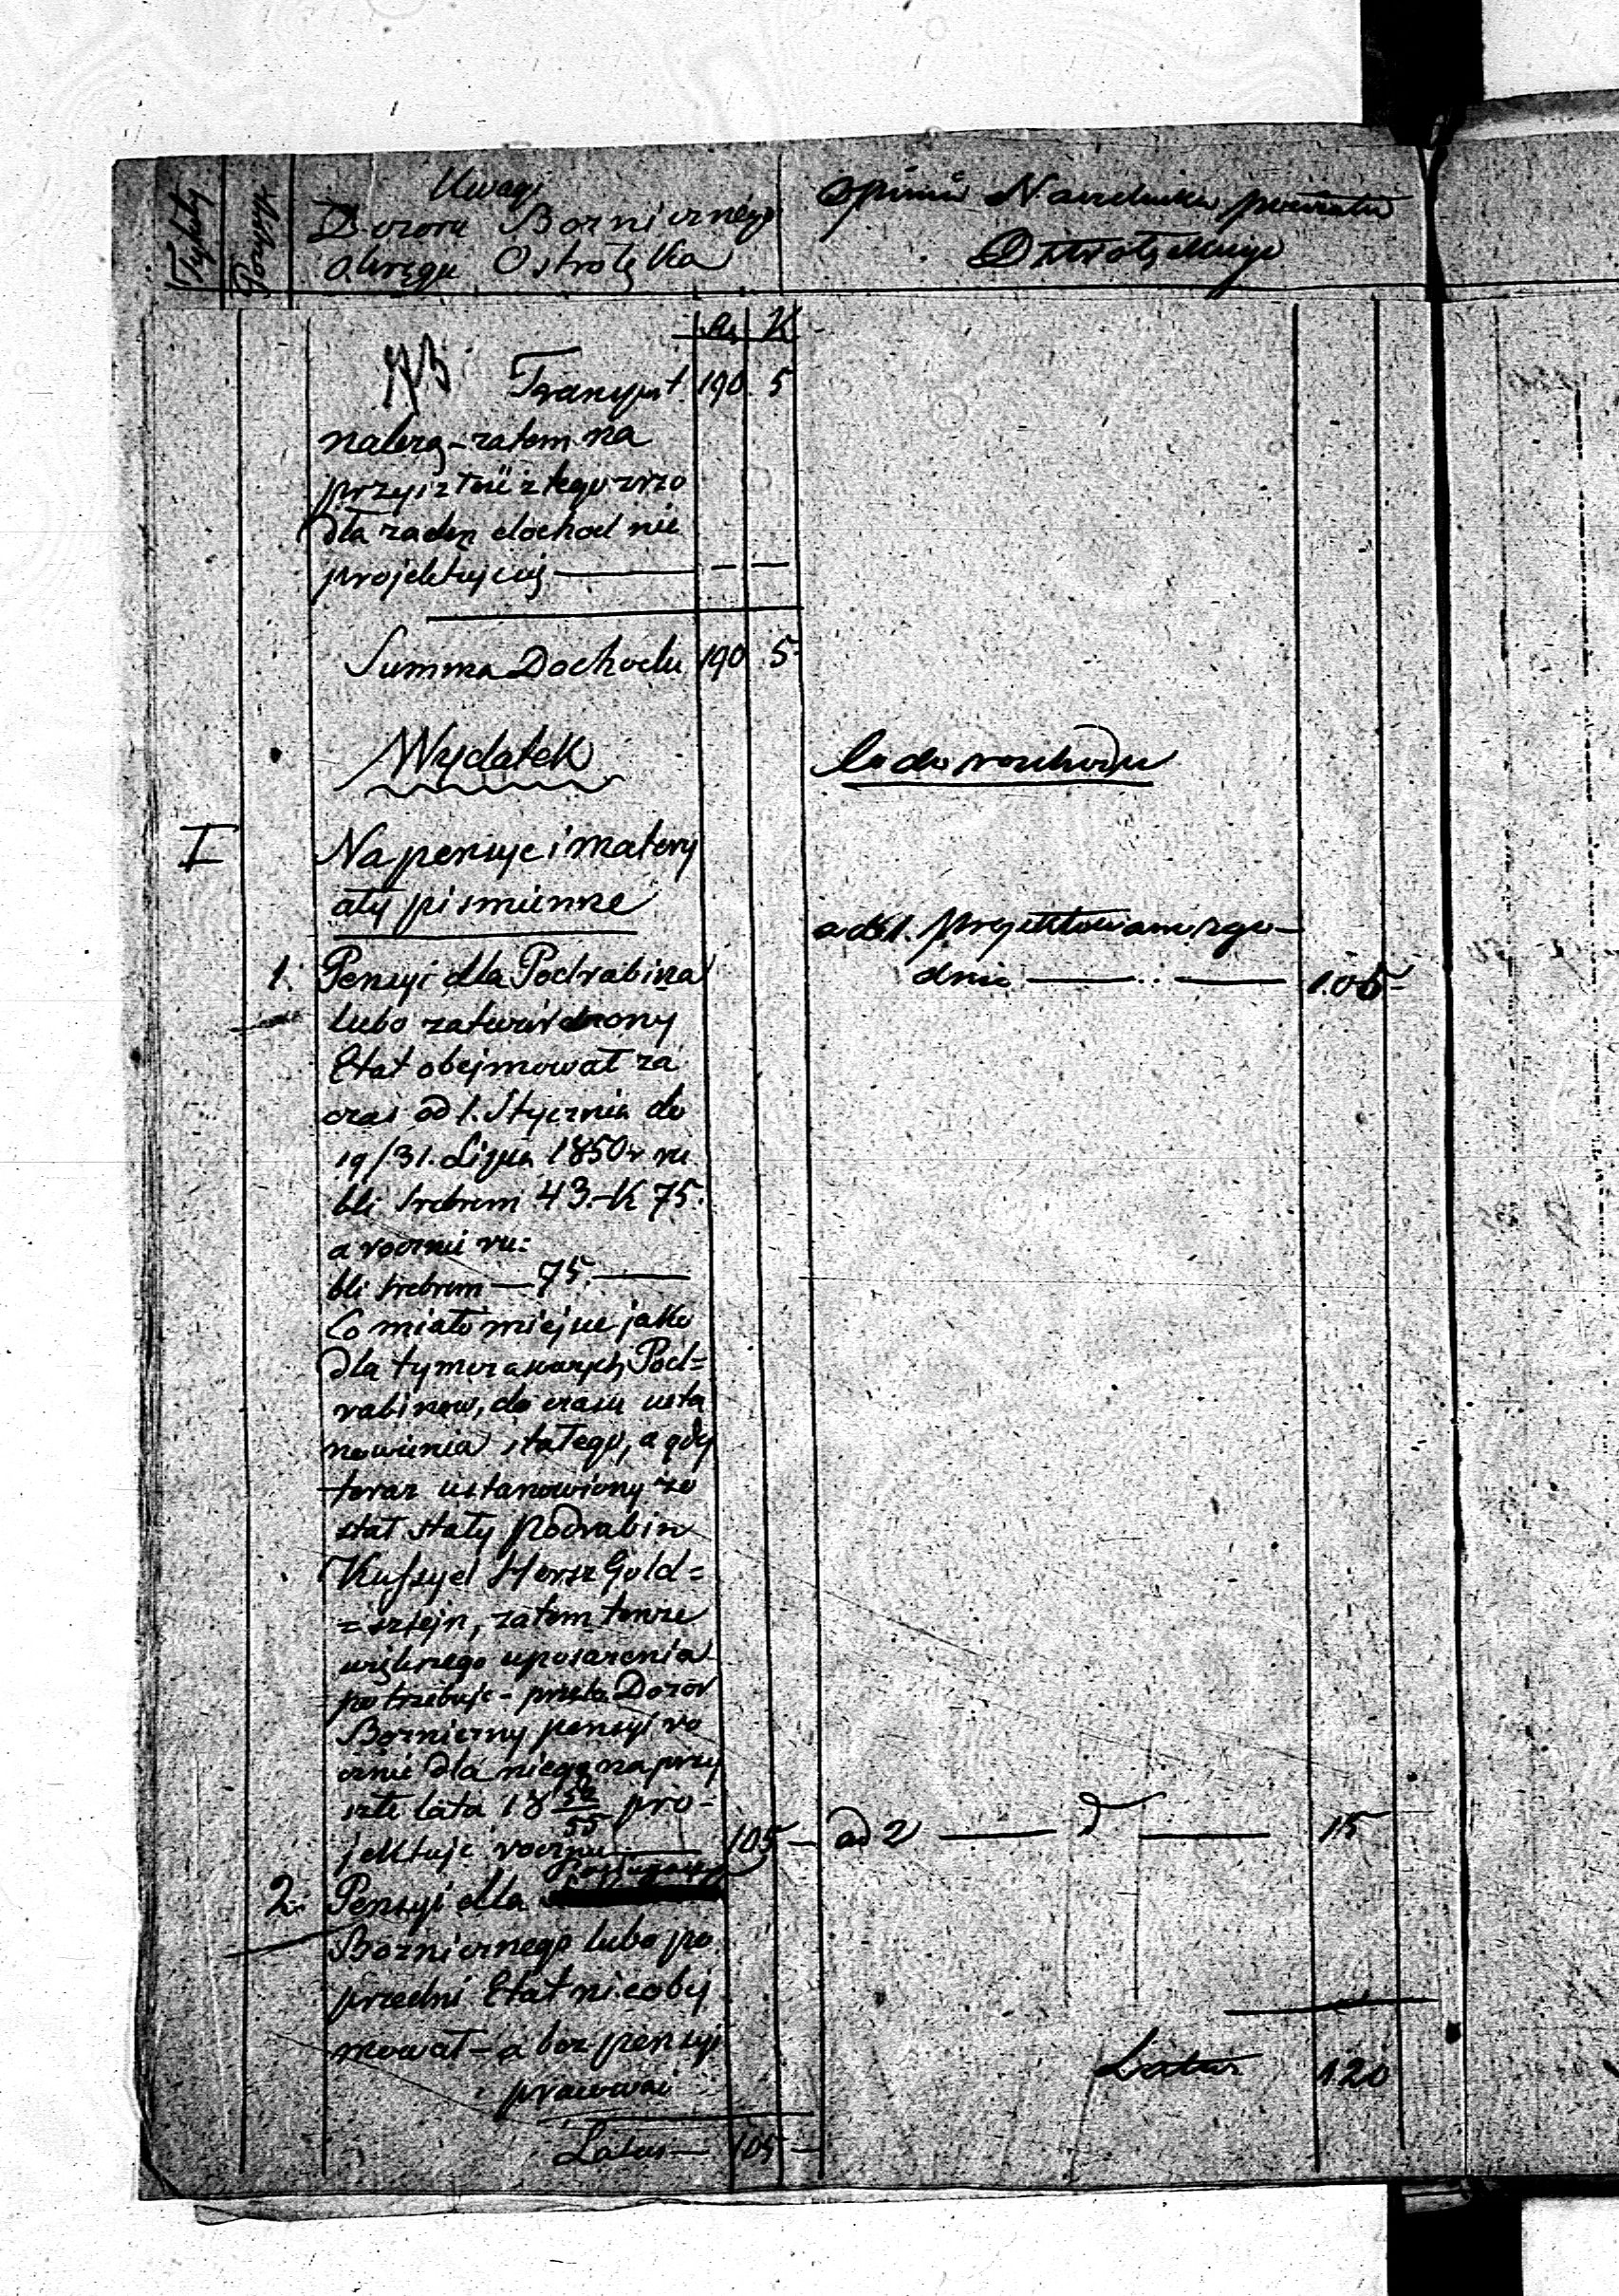 Tytuły
Pozycyja
Uwagi
Dozoru Boznicznego
Okręgu Ostrołęka
Opinia Naczelnika powiatu
Ostrołęckiego
Rs K
Transport 190 5
należą – zatem na
przyszłość z tego zrzo
dła żaden dochod nie
projektuje się — — —
Summa Dochodu 190 5
Wydatek
Co do rozchodu
I
Na pensye i matery
ały piśmienne
ad 1. projektowano zgo-
dnie — .. — 105 -
1. Pensyi dla Podrabina
lubo zatwierdzony
Etat obejmował za
czas od 1. Stycznia do
19/31. Lipca 1850 r ru
bli srebrem 43.-K 75.
a rocznie ru:
bli srebrem — 75. —
Co miało miejsce jako
dla tymczasowych Pod=
rabinow, do czasu usta
nowienia stałego, a gdy
teraz ustanowiony zo
stał stały podrabin
Kussyel Hersz Gold=
=sztejn, zatem tenże
większego uposażenia
potrzebuje - przeto Dozór
Bozniczny pensyi ro
cznie dla niego na przy
szłe lata 18 50/55 pro-
jektuje rocznie — 105 —
ad 2 — d — 15
Posługacza
2. Pensyi dla
Boznicznego lubo po
przedni Etat nieobej
mował – a bez pensyi
pracować
Latus 120
Latus — 105 —